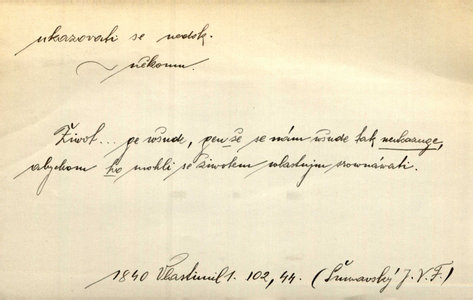 ukazovati se nedok.
~ někomu.
Život... ge wšude, gen že se nám wšude tak neukazuge,
abychom ho mohli se životem wlastnjm srownáwati.
1840 Vlastimil 1. 102, 44. (Šumavský J. F.)